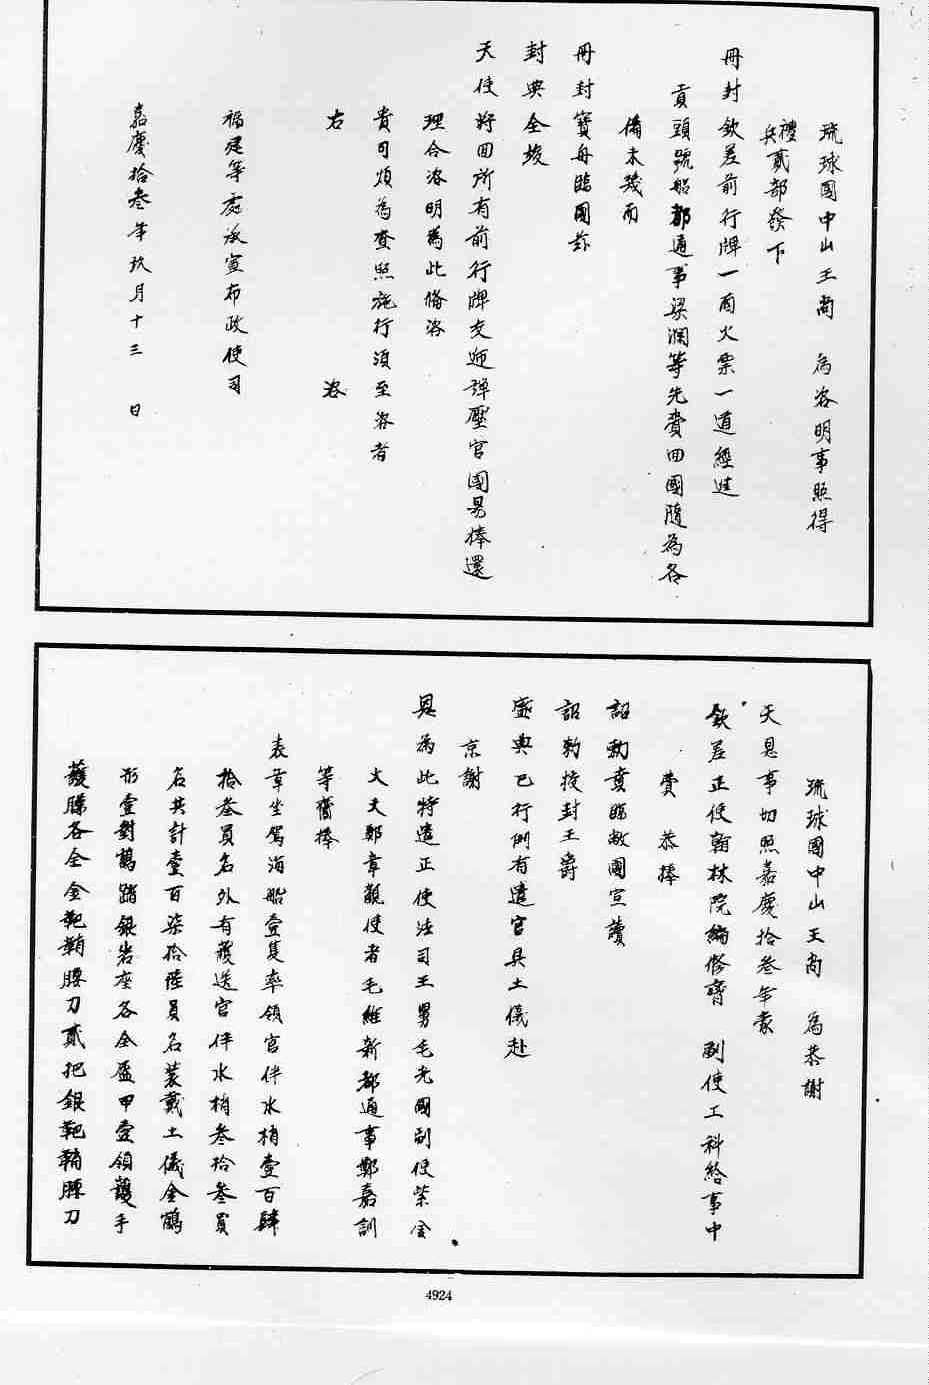 琉球國中山王尚　為咨明事照得
禮
兵貳部發下
冊封欽差前行牌一面火票一道經進
貢頭號船都通事梁淵等先賫回國隨為各
備未幾而
冊封寶舟臨國茲
封典全竣
天使將回所有前行牌交廵彈壓官國男捧還
理合咨明為此備咨
貴司煩為查照施行須至咨者
右　咨
福建等處承宣布政使司
嘉慶拾叁年玖月十三　日
琉球國中山王尚　為恭謝
天恩事切照嘉慶拾叁年蒙
欽差正使翰林院編修齊　副使工科給事中
費　恭捧
詔勅賁臨敝國宣讀
詔勅授封王爵
盛典已行例有遣官具土儀赴
京謝
恩為此特遣正使法司王舅毛光國副使紫金
大夫鄭章觀使者毛維新都通事鄭嘉訓
等齎捧
表章坐駕海船壹隻率領官伴水梢壹百肆
拾叁員名外有護送官伴水梢叁拾叁員
名共計壹百柒拾陸員名裝戴土儀金鶴
形壹對鶴踏銀岩座各全盔甲壹領護手
護臁各全金靶鞘腰刀貳把銀靶鞘腰刀
4924